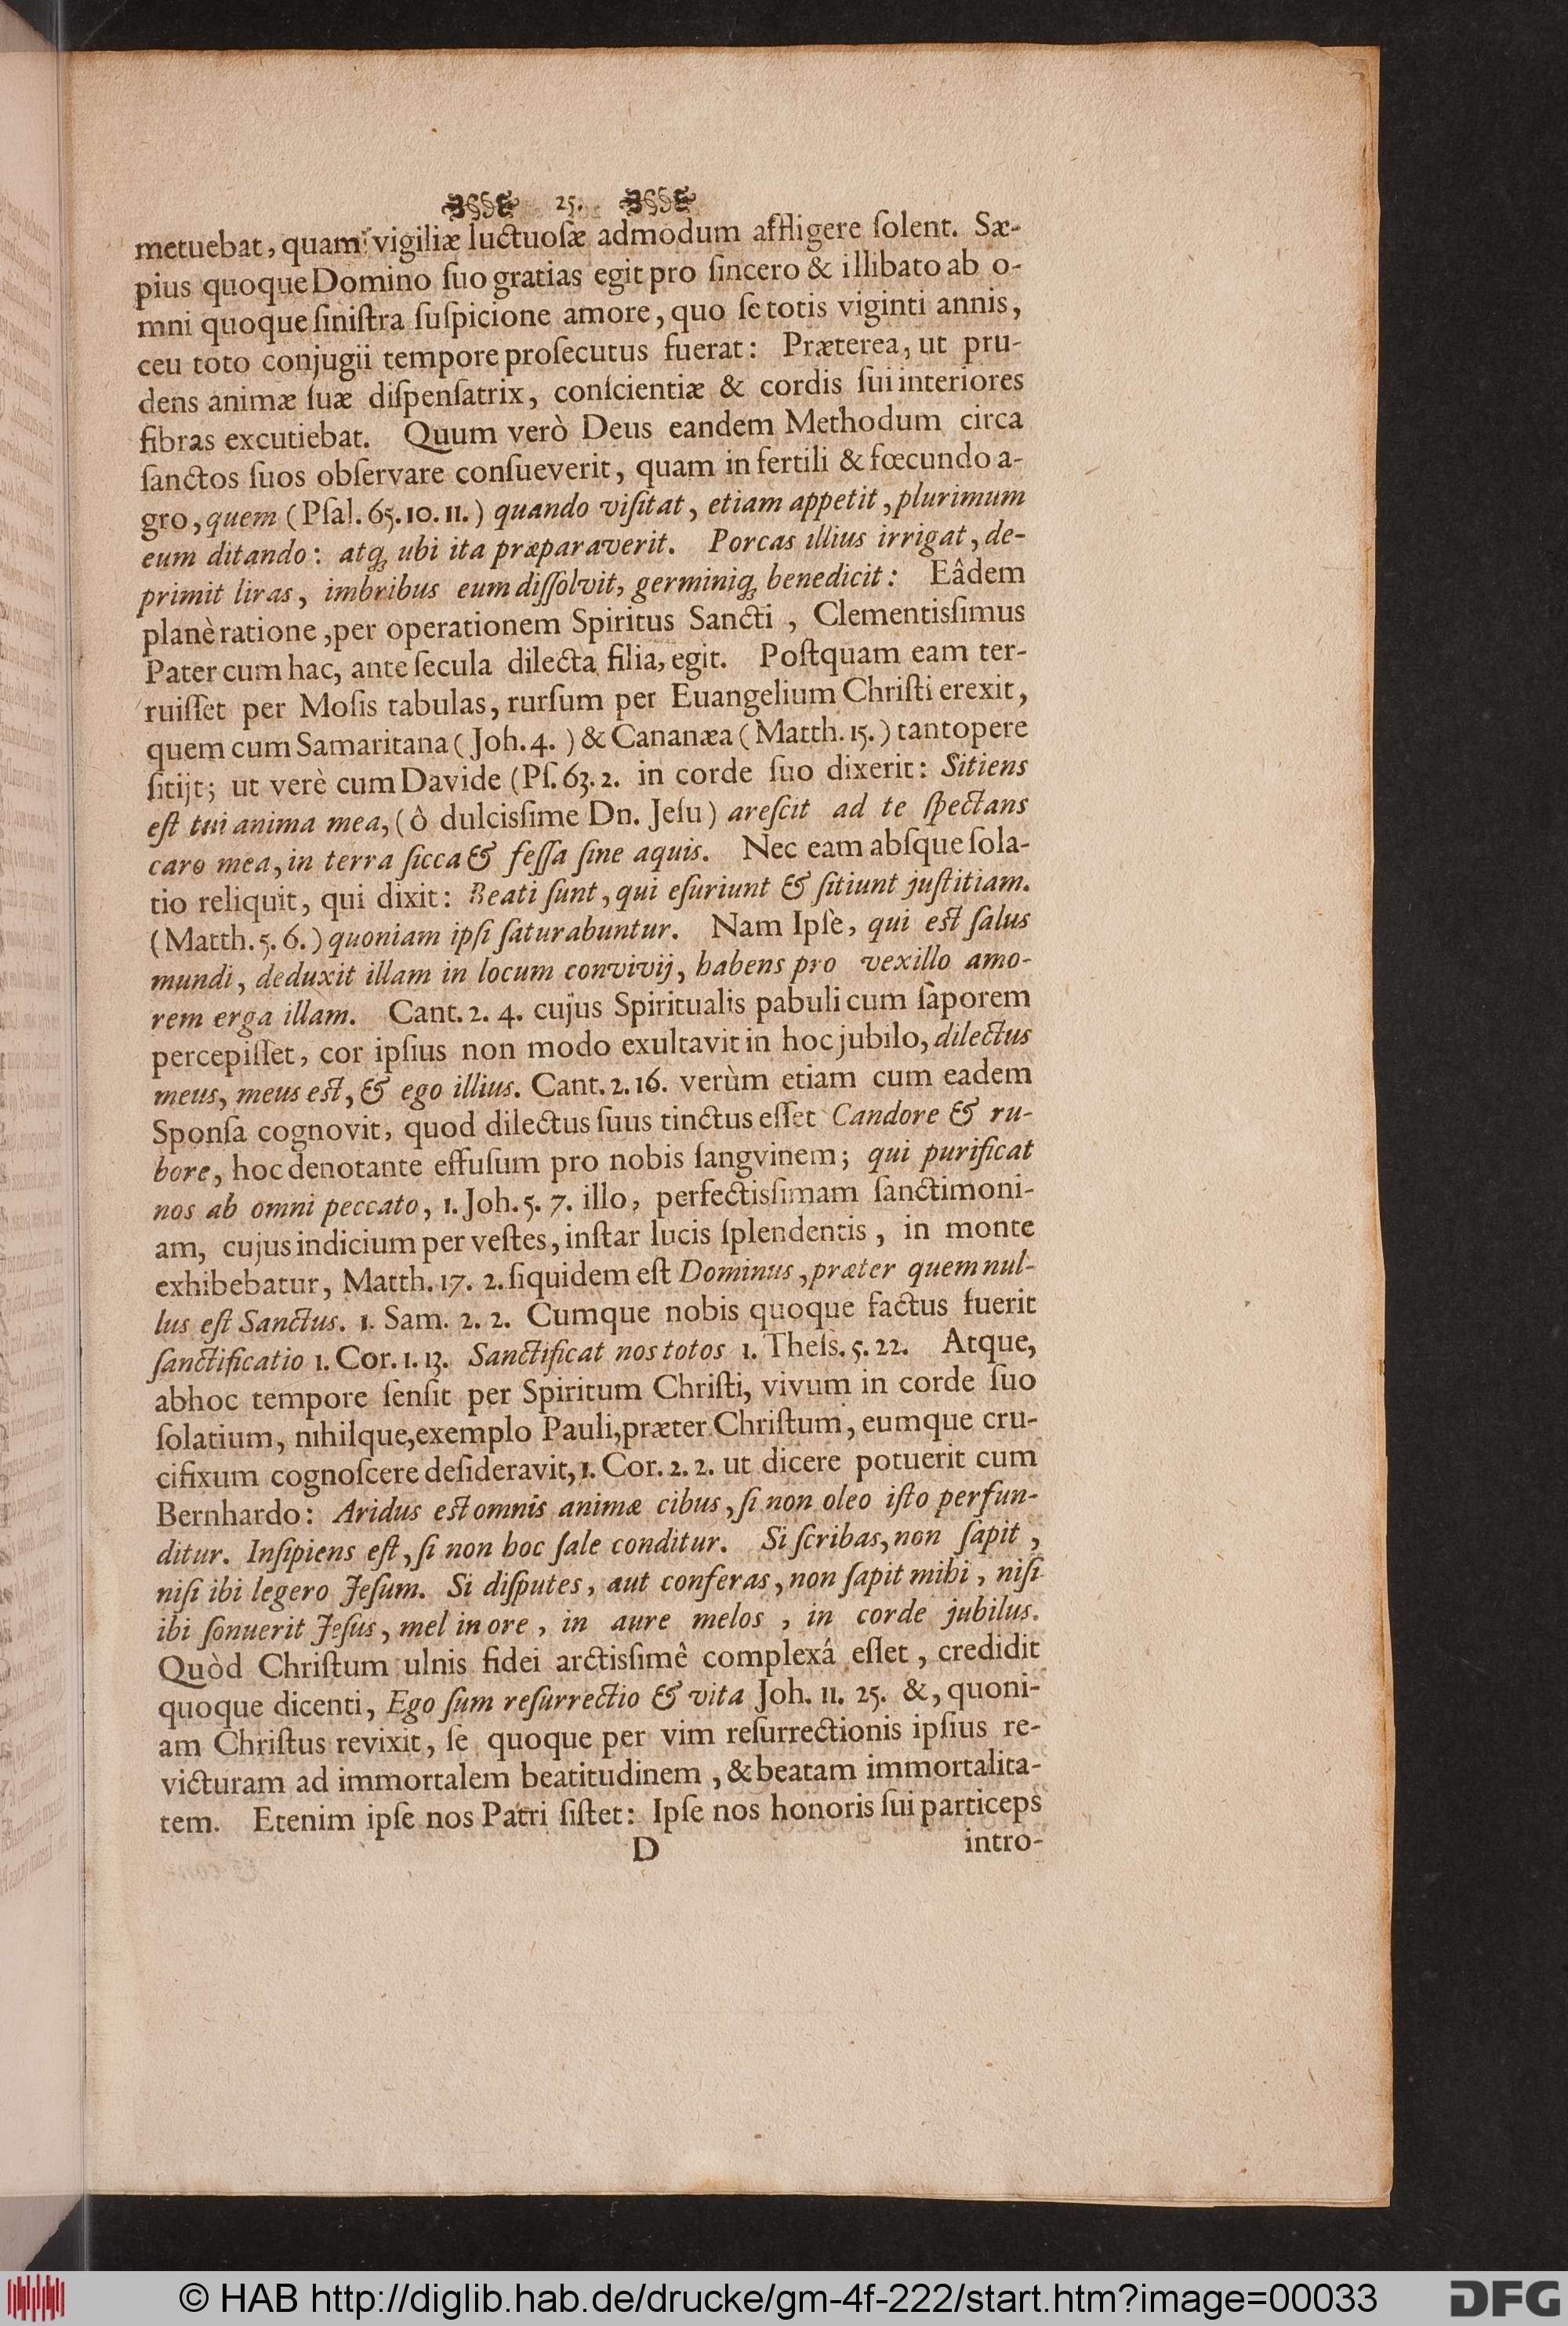 25.
metuebat, quam vigiliæ luctuoſæ admodum affligere ſolent. Sæ-
pius quoque Domino ſuo gratias egit pro ſincero & illibato ab o-
mni quoque ſiniſtra ſuſpicione amore, quo ſe totis viginti annis,
ceu toto conjugii tempore proſecutus fuerat: Præterea, ut pru-
dens animæ ſuæ diſpenſatrix, conſcientiæ & cordis ſui interiores
fibras excutiebat. Quum verò Deus eandem Methodum circa
ſanctos ſuos obſervare conſueverit, quam in fertili & fœcundo a-
gro, quem (Pſal. 65. 10. 11.) quando viſitat, etiam appetit, plurimum
eum ditando: atq; ubi ita præparaverit. Porcas illius irrigat, de-
primit liras, imbribus eum diſſolvit, germiniq; benedicit: Eâdem
planè ratione, per operationem Spiritus Sancti, Clementisſimus
Pater cum hac, ante ſecula dilecta filia, egit. Poſtquam eam ter-
ruiſſet per Moſis tabulas, rurſum per Euangelium Chriſti erexit,
quem cum Samaritana (Joh. 4.) & Cananæa (Matth. 15.) tantopere
ſitijt; ut verè cum Davide (Pſ. 63. 2. in corde ſuo dixerit: Sitiens
eſt tui anima mea, (ô dulcisſime Dn. Jeſu) areſcit ad te ſpectans
caro mea, in terra ſicca & feſſa ſine aquis. Nec eam absque ſola-
tio reliquit, qui dixit: Beati ſunt, qui eſuriunt & ſitiunt juſtitiam.
(Matth. 5. 6.) quoniam ipſi ſaturabuntur. Nam Ipſe, qui eſt ſalus
mundi, deduxit illam in locum convivij, habens pro vexillo amo-
rem erga illam. Cant. 2. 4. cujus Spiritualis pabuli cum ſaporem
percepiſſet, cor ipſius non modo exultavit in hoc jubilo, dilectus
meus, meus eſt, & ego illius. Cant. 2. 16. verùm etiam cum eadem
Sponſa cognovit, quod dilectus ſuus tinctus eſſet Candore & ru-
bore, hoc denotante effuſum pro nobis ſangvinem; qui purificat
nos ab omni peccato, 1. Joh. 5. 7. illo, perfectisſimam ſanctimoni-
am, cujus indicium per veſtes, inſtar lucis ſplendentis, in monte
exhibebatur, Matth. 17. 2. ſiquidem eſt Dominus, præter quem nul-
lus eſt Sanctus. 1. Sam. 2. 2. Cumque nobis quoque factus fuerit
ſanctificatio 1. Cor. 1. 13. Sanctificat nos totos 1. Theſs. 5. 22. Atque,
abhoc tempore ſenſit per Spiritum Chriſti, vivum in corde ſuo
ſolatium, nihilque, exemplo Pauli, præter Chriſtum, eumque cru-
cifixum cognoſcere deſideravit, 1. Cor. 2. 2. ut dicere potuerit cum
Bernhardo: Aridus eſt omnis animæ cibus, ſi non oleo iſto perfun-
ditur. Inſipiens eſt, ſi non hoc ſale conditur. Si ſcribas, non ſapit,
niſi ibi legero Jeſum. Si diſputes, aut conferas, non ſapit mihi, niſi
ibi ſonuerit Jeſus, mel in ore, in aure melos, in corde jubilus.
Quòd Chriſtum ulnis fidei arctisſimê complexá eſſet, credidit
quoque dicenti, Ego ſum reſurrectio & vita Joh. 11. 25. &, quoni-
am Chriſtus revixit, ſe quoque per vim reſurrectionis ipſius re-
victuram ad immortalem beatitudinem, & beatam immortalita-
tem. Etenim ipſe nos Patri ſiſtet: Ipſe nos honoris ſui particeps
D intro-
© HAB http://diglib.hab.de/drucke/gm-4f-222/start.htm?image=00033
DFG